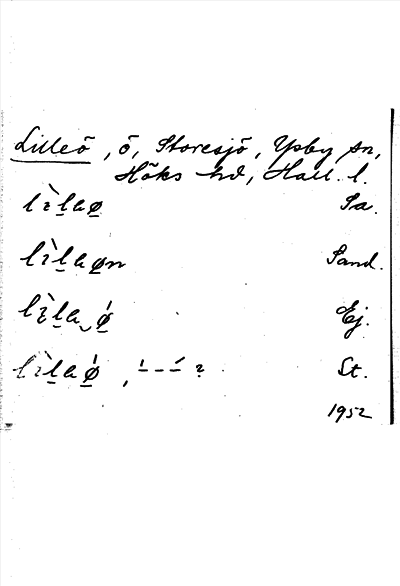 Lilleö, ö, Storesjö, Ysby sn,
Höks hd, Hall. l.
lɩ̀l̠aø Sa.
lɩ̀l̠aø̠n Sand.
lɩ̀l̠a‿ǿ̠ Ej.
lɩ̀l̠aǿ̠, ? St.
1952